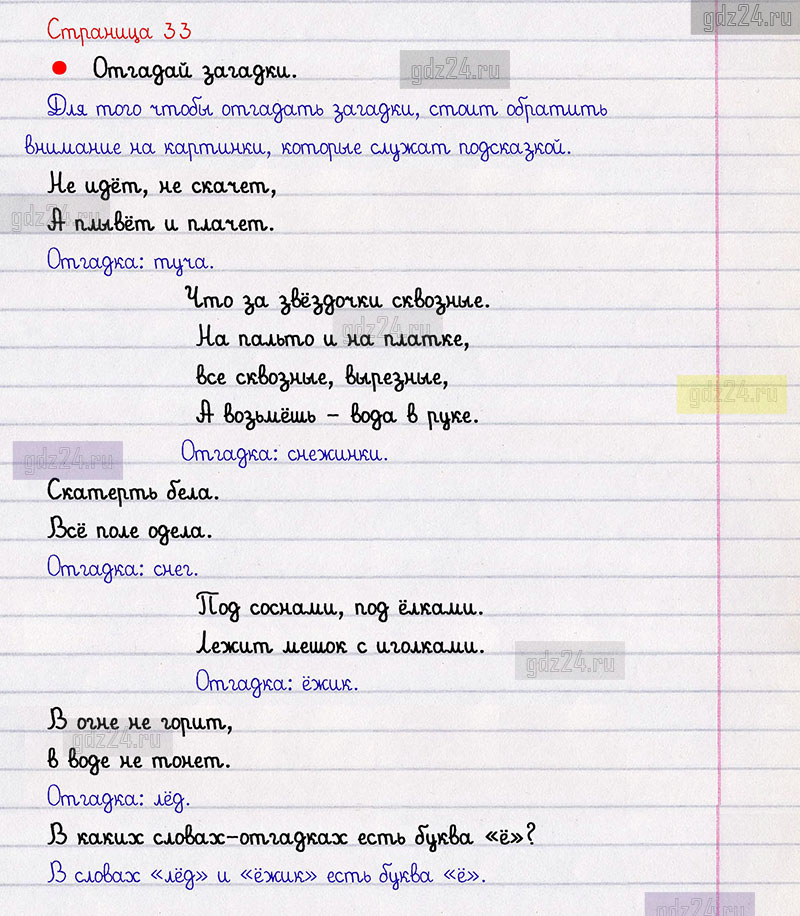 gdz24.ru
Страница 33
• Отгадай загадки.
gdz24.ru
Для того чтобы отгадать загадки, стоит обратить
внимание на картинки, которые служат подсказкой.
Не идёт, не скачет,
gdz24.ru
А плывёт и плачет.
Отгадка: туча.
Что за звёздочки сквозные.
gdz24.ru
На пальто и на платке,
все сквозные, вырезные,
gdz24.ru
А возьмёшь – вода в руке.
Отгадка: снежинки.
gdz24.ru
Скатерть бела.
Всё поле одела.
Отгадка: снег.
Под соснами, под ёлками.
Лежит мешок с иголками.
gdz24.ru
Отгадка: ёжик.
В огне не горит,
gdz24.ru
в воде не тонет.
Отгадка: лёд.
В каких словах-отгадках есть буква «ё»?
В словах «лёд» и «ёжик» есть буква «ё».
gdz24.ru